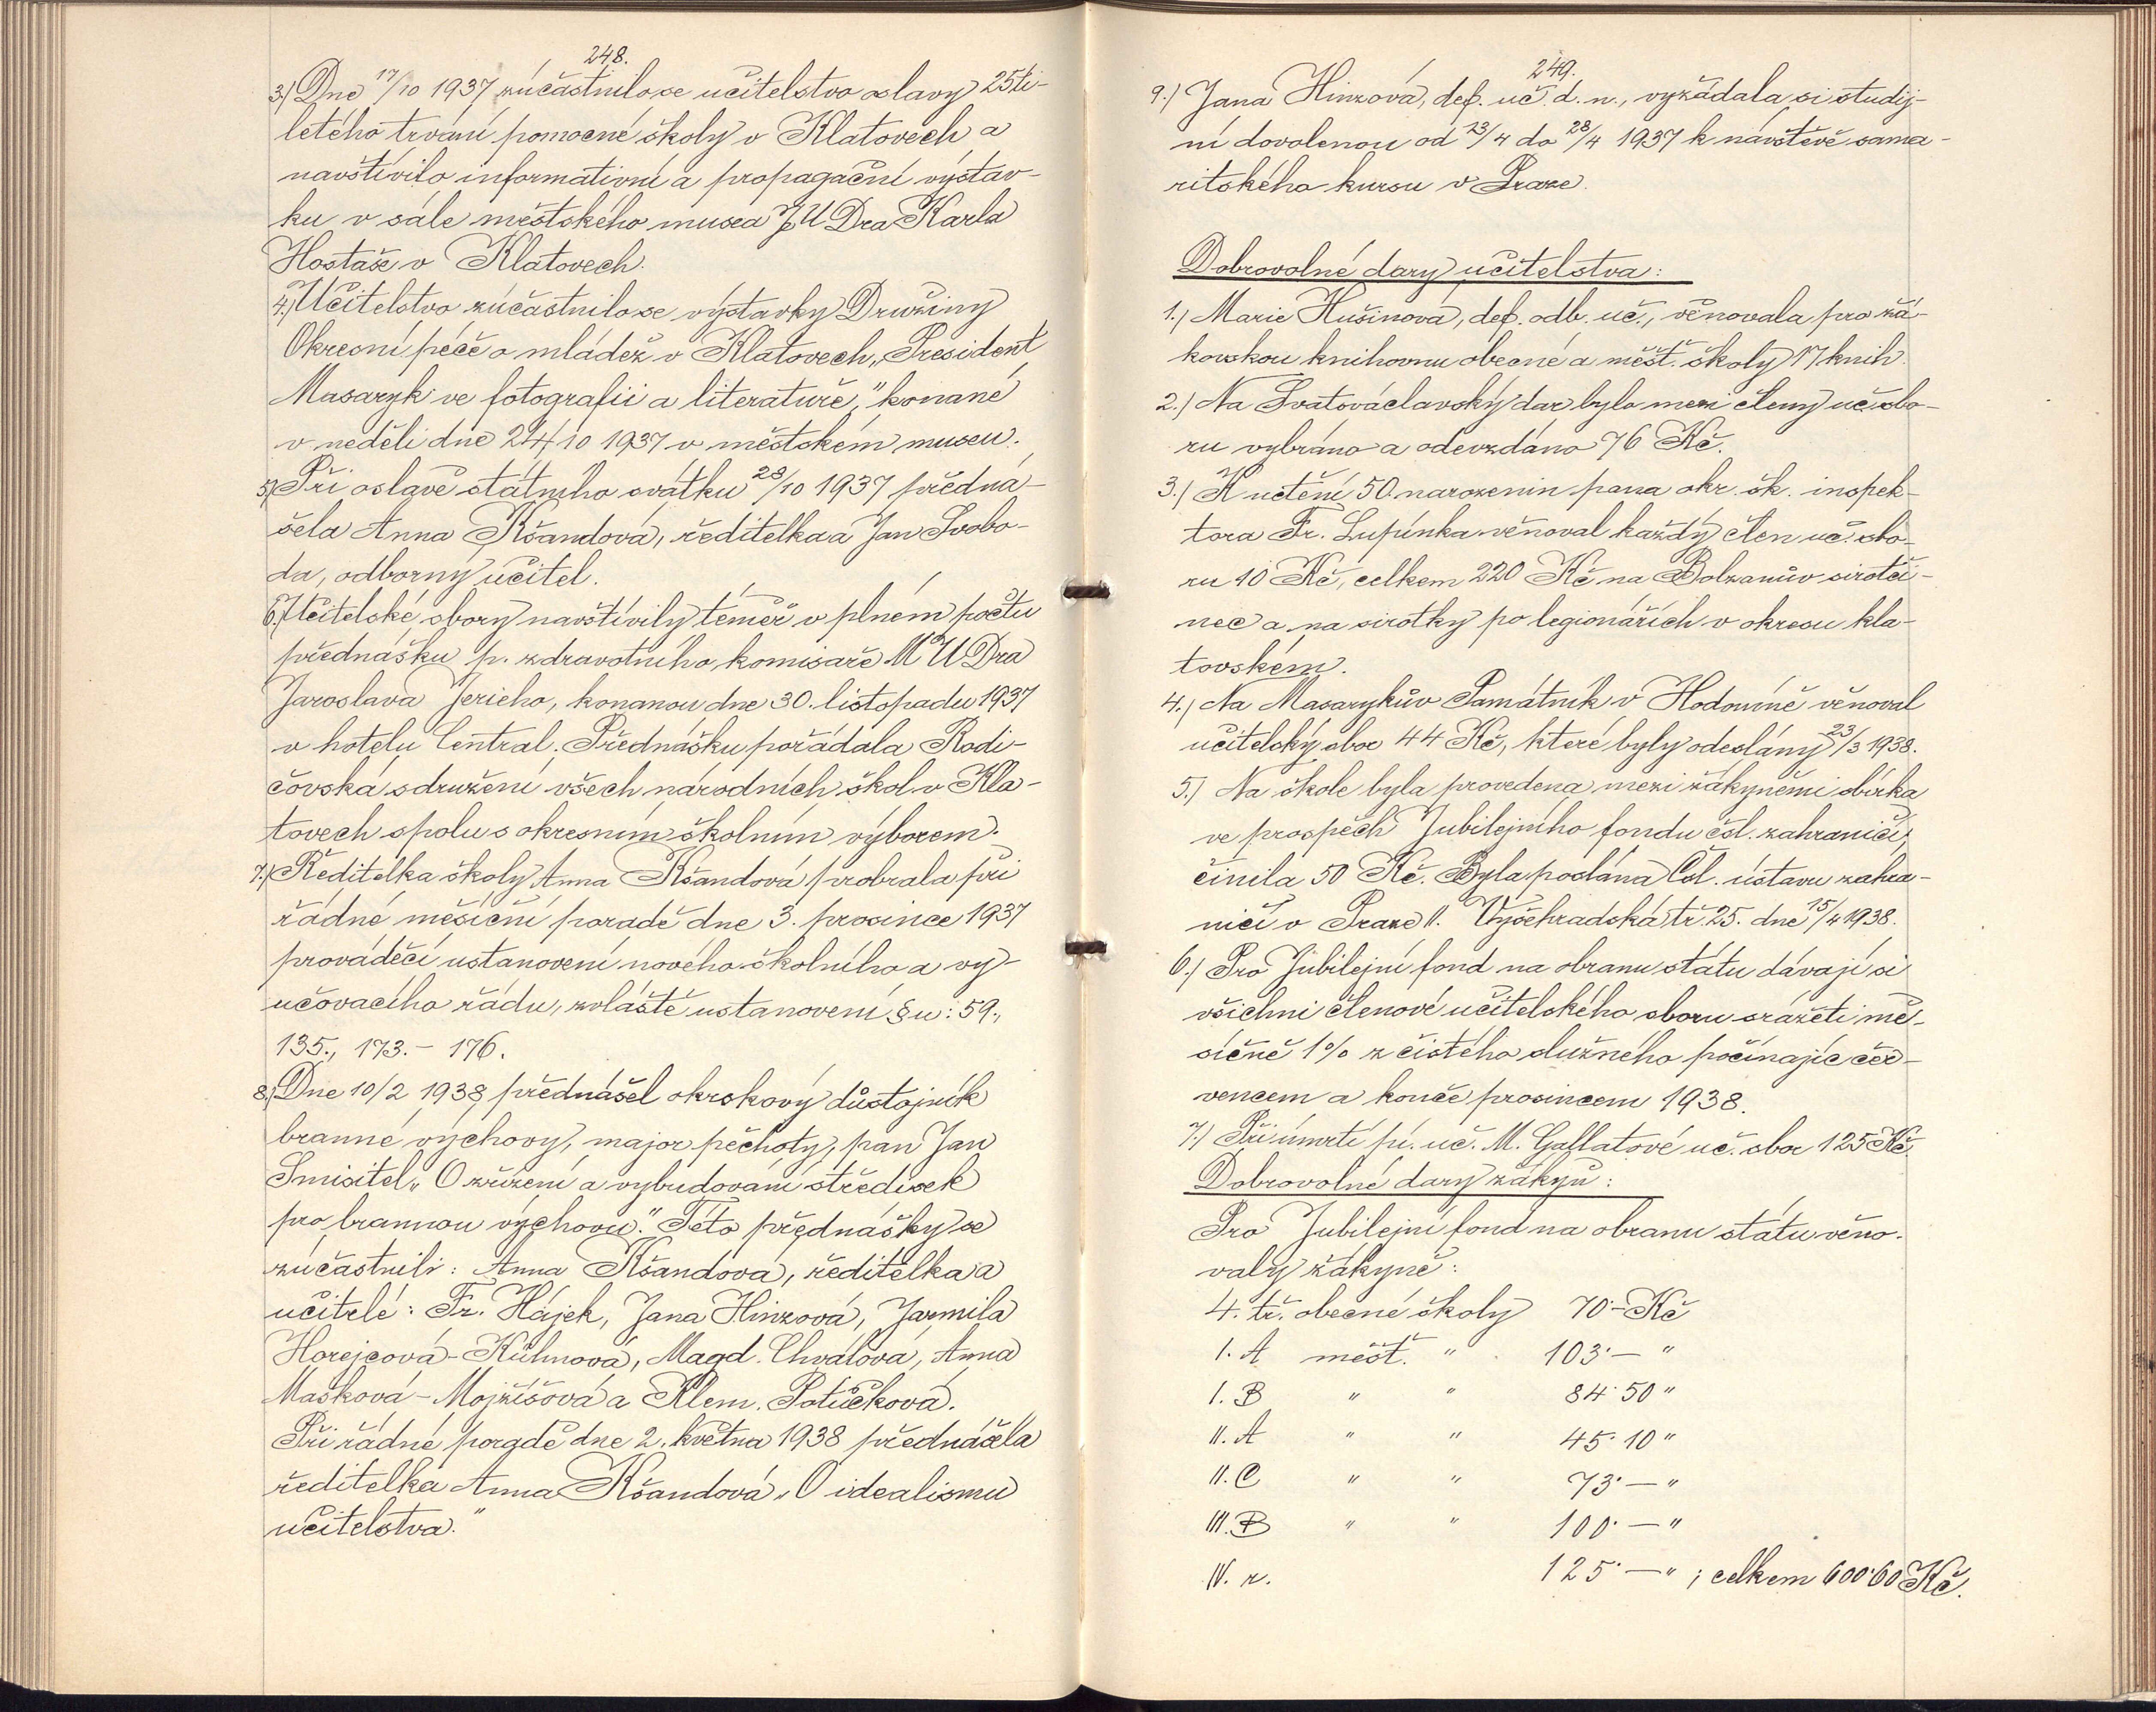 248.
3.) Dne 17/10 1937 zúčastnilo se učitelstvo oslavy 25ti-
letého trvání pomocné školy v Klatovech a
navštívilo informativní a propagační výstav-
ku v sále městského musea JUDra Karla
Hostaše v Klatovech.
4.) Učitelstvo zúčastnilo se výstavky Družiny
Okresní péče o mládež v Klatovech „President
Masaryk ve fotografii a literatuře," konané
v neděli dne 24/10 1937 v městském museu.
5.) Při oslavě státního svátku 28/10 1937 předná-
šela Anna Kšandová, ředitelka a Jan Svobo-
da, odborný učitel.
6.) Učitelské sbory navštívily téměř v plném počtu
přednášku p. zdravotního komisaře MUDra
Jaroslava Jericho, konanou dne 30. listopadu 1937
v hotelu Central. Přednášku pořádala Rodi-
čovská sdružení všech národních škol v Kla-
tovech spolu s okresním školním výborem.
7.) Ředitelka školy Anna Kšandová probrala při
řádné měsíční poradě dne 3. prosince 1937
prováděcí ustanovení nového školního a vy-
učovacího řádu, zvláště ustanovení §u: 59.,
135., 173. - 176.
8.) Dne 10/2 1938 přednášel okrskový důstojník
branné výchovy, major pěchoty, pan Jan
Smisitel „O zřízení a vybudování středisek
pro brannou výchovu." Této přednášky se
zúčastnili: Anna Kšandová, ředitelka a
učitelé: Fr. Hájek, Jana Hinzová, Jarmila
Horejcová-Kühnová, Magd. Chválová, Anna
Masková-Mojžíšová a Klem. Potůčková.
Při řádné poradě dne 2. května 1938 přednášela
ředitelka Anna Kšandová „O idealismu
učitelstva."
249.
9.) Jana Hinzová, def. uč. d. n., vyžádala si studij-
ní dovolenou od 23/4 do 28/4 1937 k návštěvě sama-
ritského kursu v Praze.
Dobrovolné dary učitelstva:
1.) Marie Hušinová, def. odb. uč., věnovala pro žá-
kovskou knihovnu obecné a měšť. školy 17 knih.
2.) Na Svatováclavský dar bylo mezi členy uč. sbo-
ru vybráno a odevzdáno 76 Kč.
3.) K uctění 50. narozenin pana okr. šk. inspek-
tora Fr. Lupínka věnoval každý člen uč. sbo-
ru 10 Kč, celkem 220 Kč na Bolzanův sirotči-
nec a na sirotky po legionářích v okresu kla-
tovském.
4.) Na Masarykův Památník v Hodoníně věnoval
učitelský sbor 44 Kč, které byly odeslány 23/3 1938.
5.) Na škole byla provedena mezi žákyněmi sbírka
ve prospěch Jubilejního fondu čsl. zahraničí,
činila 50 Kč. Byla poslána Čsl. ústavu zahra-
ničí v Praze II. Vyšehradská tř. 25. dne 15/4 1938.
6.) Pro Jubilejní fond na obranu státu dávají si
všichni členové učitelského sboru srážeti mě-
síčně 1% z čistého služného počínajíc čer-
vencem a konče prosincem 1938.
7.) Při úmrtí pí. uč. M. Gallatové uč. sbor 125 Kč.
Dobrovolné dary žákyň:
Pro Jubilejní fond na obranu státu věno-
valy žákyně:
4. tř. obecné školy 70·- Kč
I. A měšť. " 103·— "
I. B " " 84·50 "
II. A " " 45·10 "
II. C " " 73·— "
III. B " " 100·— "
IV. r. 125·— " ; celkem 600·60 Kč.